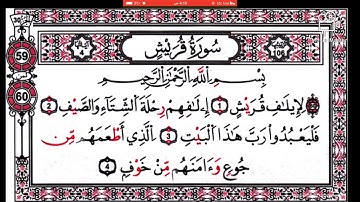 سُورَةُ قُرَيْشٍ
106
بِسْمِ ٱللَّهِ ٱلرَّحْمَٰنِ ٱلرَّحِيمِ
لِإِيلَٰفِ قُرَيْشٍ 1 إِۦلَٰفِهِمْ رِحْلَةَ ٱلشِّتَآءِ وَٱلصَّيْفِ 2
فَلْيَعْبُدُوا۟ رَبَّ هَٰذَا ٱلْبَيْتِ 3 ٱلَّذِىٓ أَطْعَمَهُم مِّن
جُوعٍ وَءَامَنَهُم مِّنْ خَوْفٍۭ 4
59
60